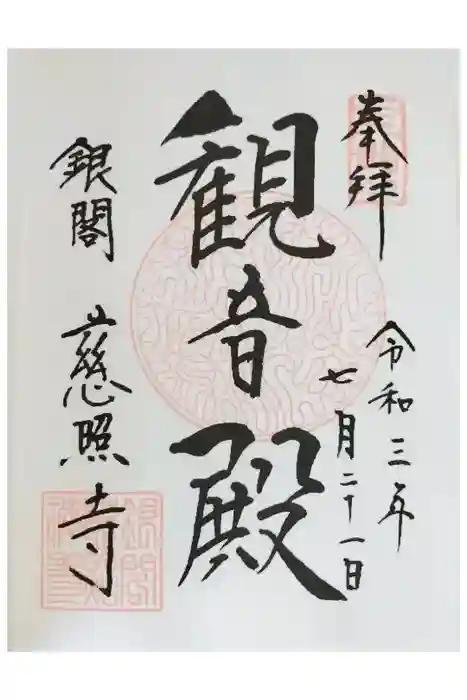 奉拝
令和三年
七月二十一日
観音殿
銀閣 慈照寺